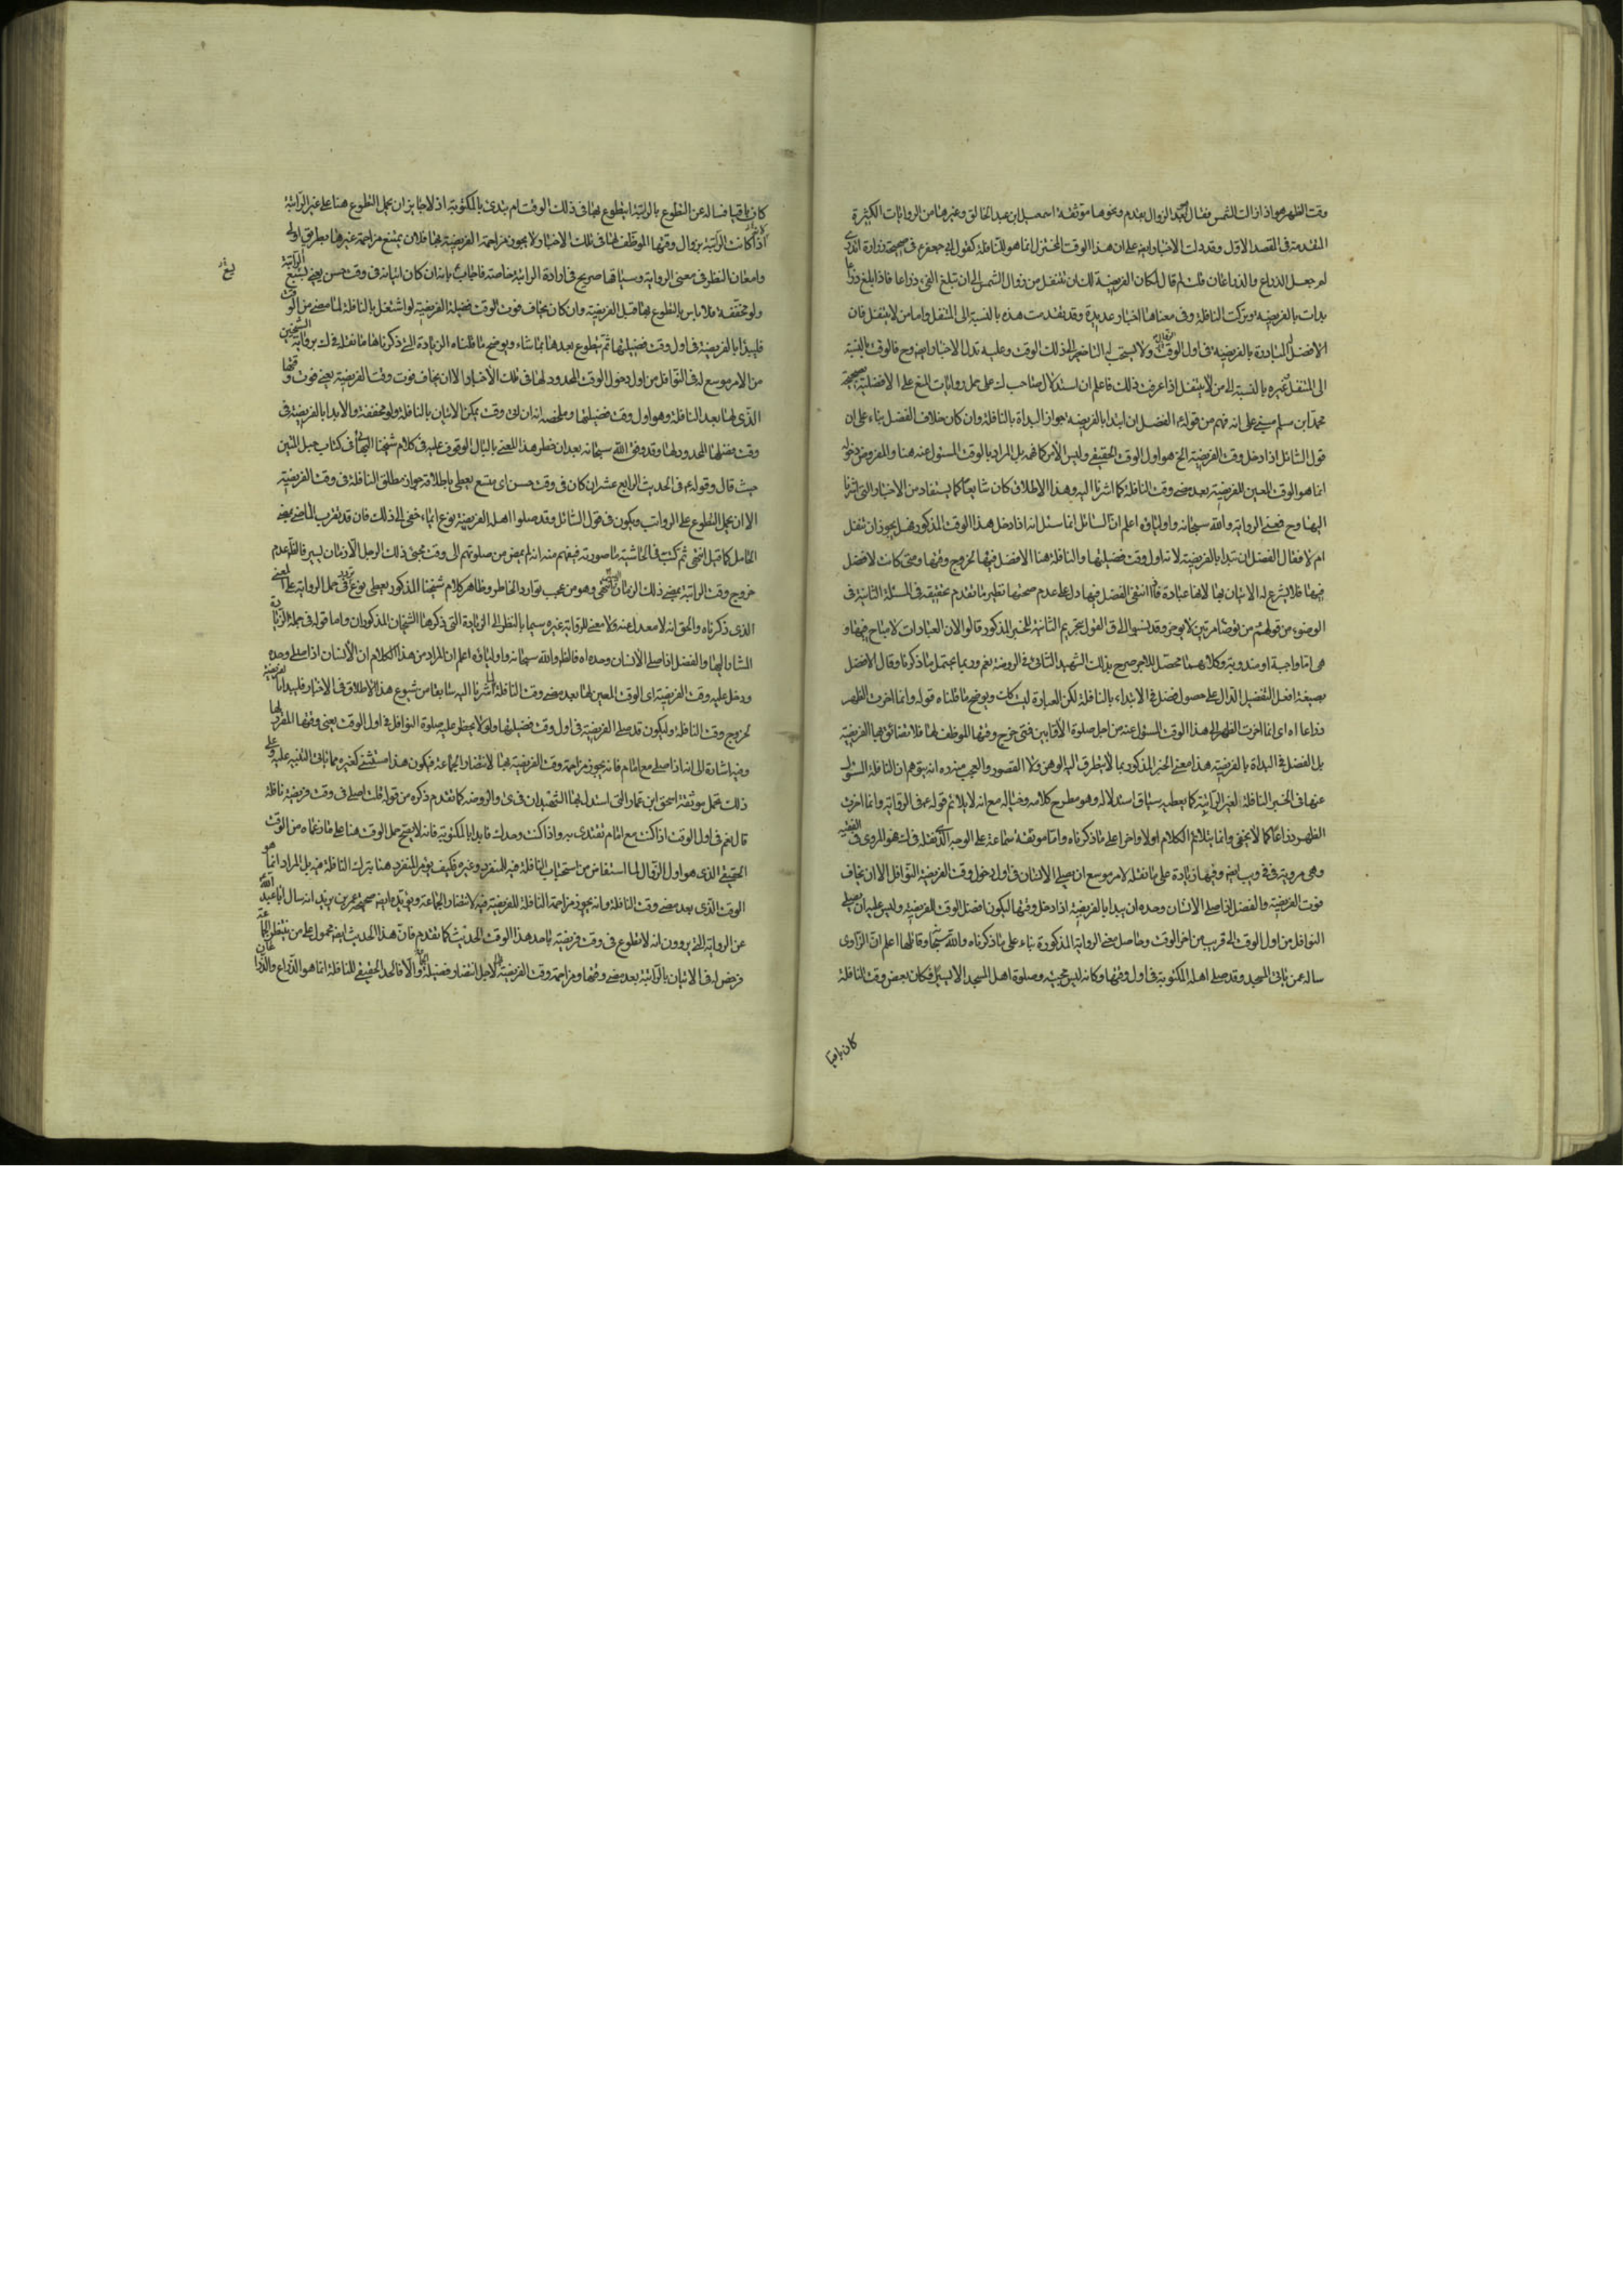 وقت الظهر هو اذا زالت الشمس فقال بعد الزوال بقدم ونحوها موثقة اسمعيل ابن عبد الخالق وغيرها من الروايات الكثيرة
المتقدمة فى المقصد الاول وقد دلت الاخبار ايضا على ان هذا الوقت المختزل انما هو للنافلة كقول ابى جعفر ع فى صحيحة زرارة اتدرى
لم جعل الذراع والذراعان قلت لم قال لمكان الفريضة لك ان تتنفل من زوال الشمس الى ان تبلغ الفىء ذراعا فاذا بلغ ذراعا
بدات بالفريضة وتركت النافلة وفى معناها اخبار عديدة وقد تقدمت هذه بالنسبة الى المتنفل واما من لا يتنفل فان
الافضل له المبادرة بالفريضة فى اول الوقت ولا يستحب له التاخير الى ذلك الوقت وعليه تدل الاخبار ايضا وح فالوقت بالنسبة
الى المتنفل غيره بالنسبة الى من لا يتنفل اذا عرفت ذلك فاعلم ان استدلال صاحب لك على حمل روايات المنع على الافضلية بصحيحة
محمد ابن مسلم مبنى على انه فهم من قوله ع الفضل ان تبدا بالفريضة جواز البداة بالنافلة وان كان خلاف الفضل بناء على ان
قول السائل اذا دخل وقت الفريضة الخ هو اول الوقت الحقيقى وليس الامر كما فهمه بل المراد بالوقت المسئول عنه هنا والمفروض دخوله
انما هو الوقت المعين للفريضة بعد مضى وقت النافلة كما اشرنا اليه وهذا الاطلاق كان شايعا كما يستفاد من الاخبار التى اشرنا
اليها وح فمعنى الرواية والله سبحانه واولياؤه اعلم ان السائل انما سئل انه اذا دخل هذا الوقت المذكور هل يجوز ان تنفل
ام لا فقال الفضل ان تبدا بالفريضة لانه اول وقت فضيلتها والنافلة هنا لا فضل فيها لخروج وقتها ومتى كانت لا فضل
فيها فلا يشرع له الاتيان بها لانها عبادة فاذا انتفى الفضل فيها دل على عدم صحتها نظير ما تقدم تحقيقه فى المسئلة الثانية فى
الوضوء من قولهم ع من توضا مرتين لا يوجر وقد نسبوا الى ق القول بتحريم الثانية للخبر المذكور قالوا لان العبادات لا مباح فيها و
هى اما واجبة او مندوبة وكلاهما محصل للاجر صرح بذلك الشهيد الثانى فى الروضة نعم ربما يحتمل ما ذكرنا وقال الافضل
بصيغة افعل التفضيل الدال على حصول فضل فى الابتداء بالنافلة لكن العبارة ليست كذلك ويوضح ما قلناه قوله وانما اخرت الظهر
ذراعا اه اى انما اخرت الظهر الى هذا الوقت المسئول عنه من اجل صلوة الاوابين فمتى خرج وقتها الموظف لها فلا تضايق بها الفريضة
بل الفضل فى البداة بالفريضة هذا معنى الخبر المذكور بما لا يتطرق اليه الوهن ولا القصور والعجب منه ره انه يتوهم ان النافلة المسئول
عنها فى الخبر النافلة الغير الراتبة كما يعطيه سياق استدلاله وهو مطرح كلامه وخياله مع انه لا يلائم قوله ع فى الرواية وانما اخرت
الظهر ذراعا كما لا يخفى وانما يتلائم الكلام اولا واخرا على ما ذكرناه واما موثقة سماعة على الوجه الذى نقله فى لك هو المروى فى الفقيه
وهى مروية فى فى ويب ايضا وفيها زيادة على ما نقله لامر موسع ان يصلى الانسان فى اول دخول وقت الفريضة النوافل الا ان يخاف
فوت الفريضة والفضل اذا صلى الانسان وحده ان يبدا بالفريضة اذا دخل وقتها ليكون افضل الوقت الفريضة وليس عليه ان يصلى
النوافل من اول الوقت الى قريب من اخر الوقت وحاصل معنى الرواية المذكورة بناء على ما ذكرناه والله سبحانه وقائلها اعلم ان الراوى
ساله عمن ياتى المسجد وقد صلى اهله المكتوبة فى اول وقتها وكانه ليس مجيئه وصلوة اهل المسجد الا ليسير فكان بعض وقت النافلة
كان باقيا
كان باقيا فساله عن التطوع بالراتبة ايتطوع بها فى ذلك الوقت ام يبتدى بالمكتوبة اذ لا جايز ان يحمل التطوع هنا على غير الراتبة
اذا كانت الراتبة بزوال وقتها الموظف لها فى تلك الاخبار ولا يجوز مزاحمة الفريضة بها فلان يمتنع مزاحمة غيرها بطريق اولى
وامعان النظر فى معنى الرواية وسياقها صريح فى ارادة الراتبة خاصة فاجاب ع بانه ان كان اتيانه فى وقت حسن يعنى يتسع الراتبة
ولو مخففة فلا باس بالتطوع بها قبل الفريضة وان كان يخاف فوت الوقت فضيلة الفريضة لو اشتغل بالنافلة لما مضى من الوقت
فليبدا بالفريضة فى اول وقت فضيلتها ثم يتطوع بعدها بما شاء ويوضح ما قلناه الزيادة التى ذكرناها ما نقله فى لك برواية الشيخين
من الامر موسع له فى النوافل من اول دخول الوقت المحدود لها فى تلك الاخبار الا ان يخاف فوت وقت الفريضة يعنى فوت وقتها
الذى لها بعد النافلة وهو اول وقت فضيلتها وملخصه انه ان اتى وقت يمكن الاتيان بالنافلة ولو مخففة والا بدا بالفريضة فى
وقت فضلها المحدود لها وقد وفق الله سبحانه بعد ان خطر هذا المعنى بالبال الوقوف عليه فى كلام شيخنا البهائى فى كتاب حبل المتين
حيث قال وقوله ع فى الحديث الرابع عشر ان كان فى وقت حسن اى متسع يعطى باطلاقه جواز مطلق النافلة فى وقت الفريضة
الا ان يحمل التطوع على الرواتب ويكون فى قول السائل وقد صلوا اهله الفريضة نوع ايماء خفى الى ذلك فان قد يقرب الماضى بمعنى
الحامل كما قيل انتهى ثم كتب فى الحاشية ما صورته فيفهم منه انه لم يمض من صلوتهم الى وقت مجىء ذلك الرجل الا زمان يسير فالظاهر عدم
خروج وقت الراتبة بمضى ذلك الزمان اليسير انتهى وهو من عجيب توارد الخاطر وظاهر كلام شيخنا المذكور يعطى نوع تردد فى حمل الرواية على المعنى
الذى ذكرناه والحق انه لا معدل عنه ولا معنى للرواية غيره سيما بالنظر الى الزيادة التى ذكرها الشيخان المذكوران واما قوله فى جملة الزيادة
المشار اليها والفضل اذا صلى الانسان وحده اه فالظ والله سبحانه واولياؤه اعلم ان المراد من هذا الكلام ان الانسان اذا صلى وحده
ودخل عليه وقت الفريضة اى الوقت المعين لها بعد مضى وقت النافلة لما اشرنا اليه سابقا من شيوع هذا الاطلاق فى الاخبار فليبدا بالفريضة
لخروج وقت النافلة وليكون قد صلى الفريضة فى اول وقت فضيلتها ولو لا يحظر عليه صلوة النوافل فى اول الوقت يعنى وقتها المقرر لها
وفيه اشارة الى انه اذا صلى مع امام فانه يجوز مزاحمة وقت الفريضة بها لانتظار الجماعة فيكون هذا مستثنى كغيره مما ياتى التنبيه عليه وعلى
ذلك تحمل موثقة اسحق ابن عمار التى استدل بها الشهيدان فى ى والروضة كما تقدم ذكره من قوله قلت اصلى فى وقت فريضة نافلة
قال نعم فى اول الوقت اذا كنت مع امام تقتدى به واذا كنت وحدك فابدا بالمكتوبة فانه لا يصح حمل الوقت هنا على ما زعماه من الوقت
الحقيقى الذى هو اول الزوال لما استفاض من استحباب النافلة فيه للمنفرد وغيره فكيف يؤمر المنفرد هنا بترك النافلة فيه بل المراد انما هو
الوقت الذى بعد مضى وقت النافلة وانه يجوز مزاحمة النافلة للفريضة فيه لانتظار الجماعة ويؤيده ايضا صحيحة عمر بن يزيد انه سال ابا عبد الله
عن الرواية التى يروون انه لا تطوع فى وقت فريضة ما حد هذا الوقت الحديث كما تقدم فان هذا الحديث ايضا محمول على من ينتظر الجماعة
فرخص له فى الاتيان بالراتبة بعد مضى وقتها ومزاحمة وقت الفريضة لاجل انتظار فضيلة الجماعة والا فالحد الحقيقى للنافلة انما هو الذراع والذراعان